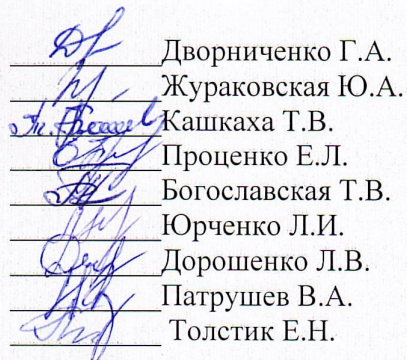 Дворниченко Г.А.
Жураковская Ю.А.
Кашкаха Т.В.
Проценко Е.Л.
Богославская Т.В.
Юрченко Л.И.
Дорошенко Л.В.
Патрушев В.А.
Толстик Е.Н.